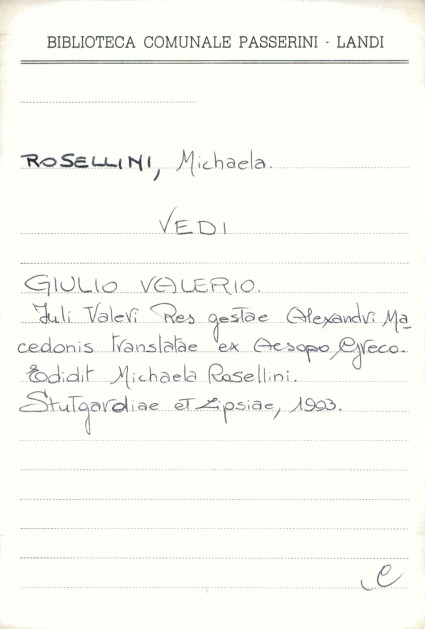 BIBLIOTECA COMUNALE PASSERINI - LANDI
ROSELLINI, Michaela.
VEDI
GIULIO VALERIO.
Juli Valeri Res gestae Alexandri Ma
cedonis translatae ex Aesopo Greco.
Edidit Michaela Rosellini.
Stutgardiae et Lipsiae, 1993.